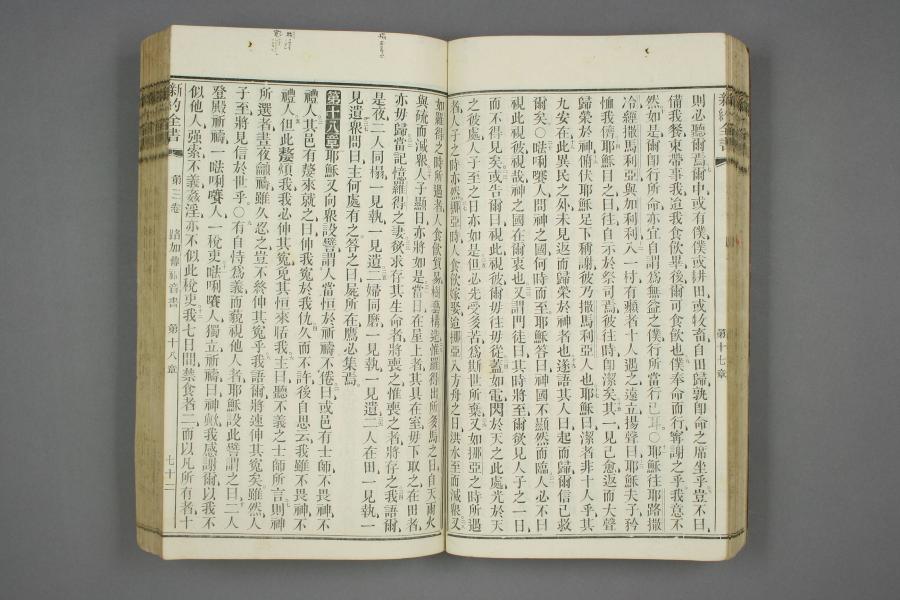 則必聽爾焉爾中或有僕僕或耕田或牧畜自田歸孰卽命之席坐乎豈不曰
備我餐束帶事我迨我食飲畢後爾可食飲也僕奉命而行寧謝之乎我意不
然如是爾卽行所命亦宜自謂爲無益之僕行所當行已耳○耶穌往耶路撒
冷經撒馬利亞與加利利入一村有癩者十人遇之遠立揚聲曰耶穌夫子矜
恤我儕耶穌見之曰往自示於祭司焉彼往時卽潔矣其一見己愈返而大聲
歸榮於神俯伏耶穌足下稱謝彼乃撒馬利亞人也耶穌曰潔者非十人乎其
九安在此異民之外未見返而歸榮於神者也遂語其人曰起而歸爾信已救
爾矣○𠵽唎㘔人問神之國何時而至耶穌答曰神國不顯然而臨人必不曰
視此視彼視哉神之國在爾衷也又謂門徒曰其時將至爾欲見人子之一日
而不得見矣或告爾曰視此視彼爾毋往毋從蓋如電閃於天之此處光於天
之彼處人子至之日亦如是但必先受多苦爲斯世所棄又如挪亞之時所遇
者人子之時亦然挪亞時人食飲嫁娶迨挪亞入方舟之日洪水至而滅衆又
如羅得之時所遇者人食飲貿易樹藝構造惟羅得出所多馬之日自天雨火
與硫而滅衆人子顯日亦將如是當日在屋上者其具在室毋下取之在田者
亦毋歸當記憶羅得之妻欲求存其生命者將喪之惟喪之者將存之我語爾
是夜二人同榻一見執一見遺二婦同磨一見執一見遺二人在田一見執一
見遺衆問曰主何處有之答之曰屍所在鷹必集焉
第十八章耶穌又向衆設譬謂人當恒於祈禱不倦曰或邑有士師不畏神不
禮人其邑有嫠來就之曰伸我寃於我仇久而不許後自思云我雖不畏神不
禮人但此嫠煩我我必伸其寃免其恒來聒我主曰聽不義之士師所言則神
所選者晝夜籲禱雖久忍之豈不終伸其寃乎我語爾將速伸其寃矣雖然人
子至將見信於世乎○有自恃爲義而藐視他人者耶穌設此譬謂之曰二人
登殿祈禱一𠵽唎㘔人一稅吏𠵽唎㘔人獨立祈禱曰神歟我感謝爾以我不
似他人强索不義姦淫亦不似此稅吏我七日間禁食者二而以凡所有者十
新約全書
第三卷
路加傳福音書
第十八章
七十二
新約全書
第十七章